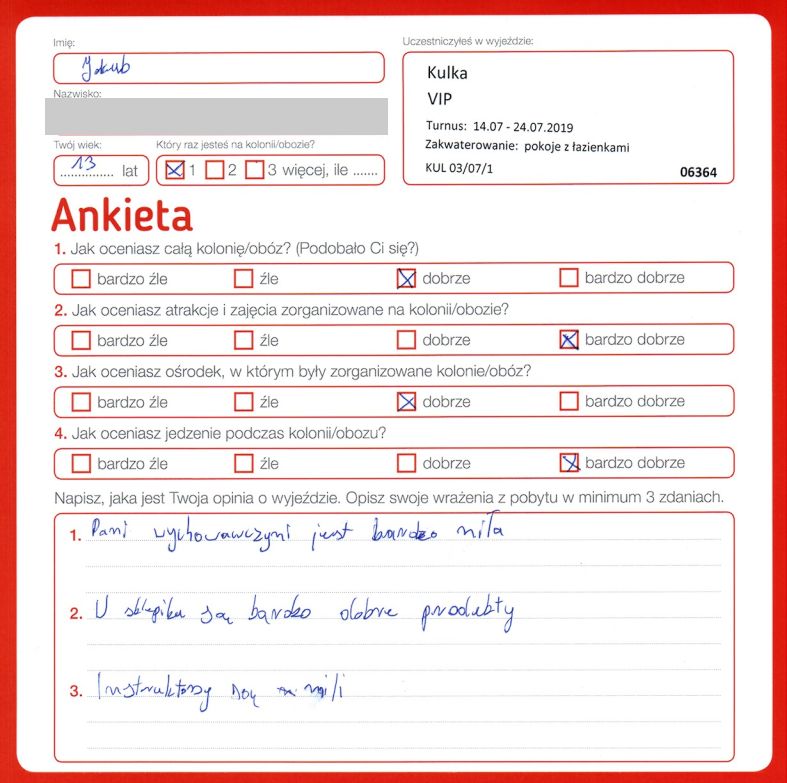 Imię:
Jakub
Nazwisko:
Twój wiek:
13 lat
Który raz jesteś na kolonii/obozie?
1 2 3 więcej, ile .......
Uczestniczyłeś w wyjeździe:
Kulka
VIP
Turnus: 14.07 - 24.07.2019
Zakwaterowanie: pokoje z łazienkami
KUL 03/07/1 06364
Ankieta
1. Jak oceniasz całą kolonię/obóz? (Podobało Ci się?)
bardzo źle źle dobrze bardzo dobrze
2. Jak oceniasz atrakcje i zajęcia zorganizowane na kolonii/obozie?
bardzo źle źle dobrze bardzo dobrze
3. Jak oceniasz ośrodek, w którym były zorganizowane kolonie/obóz?
bardzo źle źle dobrze bardzo dobrze
4. Jak oceniasz jedzenie podczas kolonii/obozu?
bardzo źle źle dobrze bardzo dobrze
Napisz, jaka jest Twoja opinia o wyjeździe. Opisz swoje wrażenia z pobytu w minimum 3 zdaniach.
1. Pani wychowawczyni jest bardzo miła
2. U sklepiku są bardzo dobre produkty
3. Instruktorzy są mili